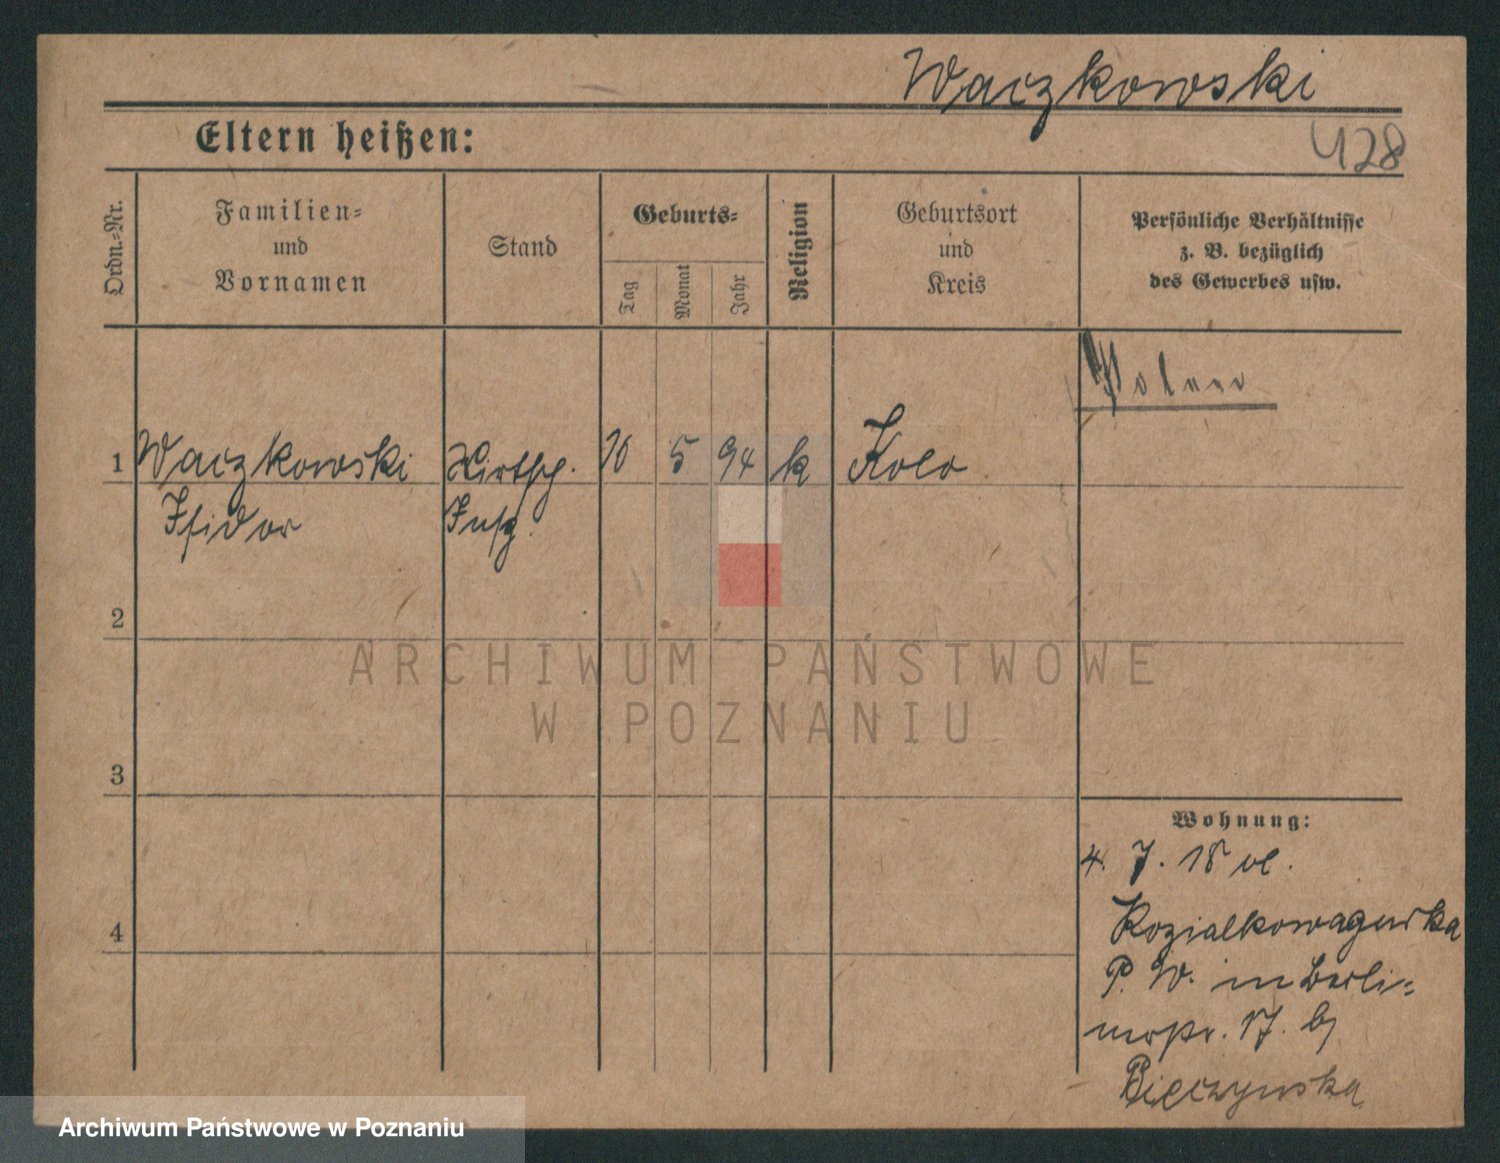 Waczkowski
Eltern heißen:
428
Ordn.-Nr.
Familien-
und
Vornamen
Stand
Geburts-
Tag
Monat
Jahr
Religion
Geburtsort
und
Kreis
Persönliche Verhältnisse
z. B. bezüglich
des Gewerbes usw.
Polen
1 Waczkowski Wirtsch. 5 94 k Kolo
Isidor Insp.
2
3
4
Wohnung:
4. 7. 18 vl.
Kozialkowagurka
P. W. in Berli-
nerstr. 17. b/
Bieczynska
ARCHIWUM PAŃSTWOWE
W POZNANIU
Archiwum Państwowe w Poznaniu